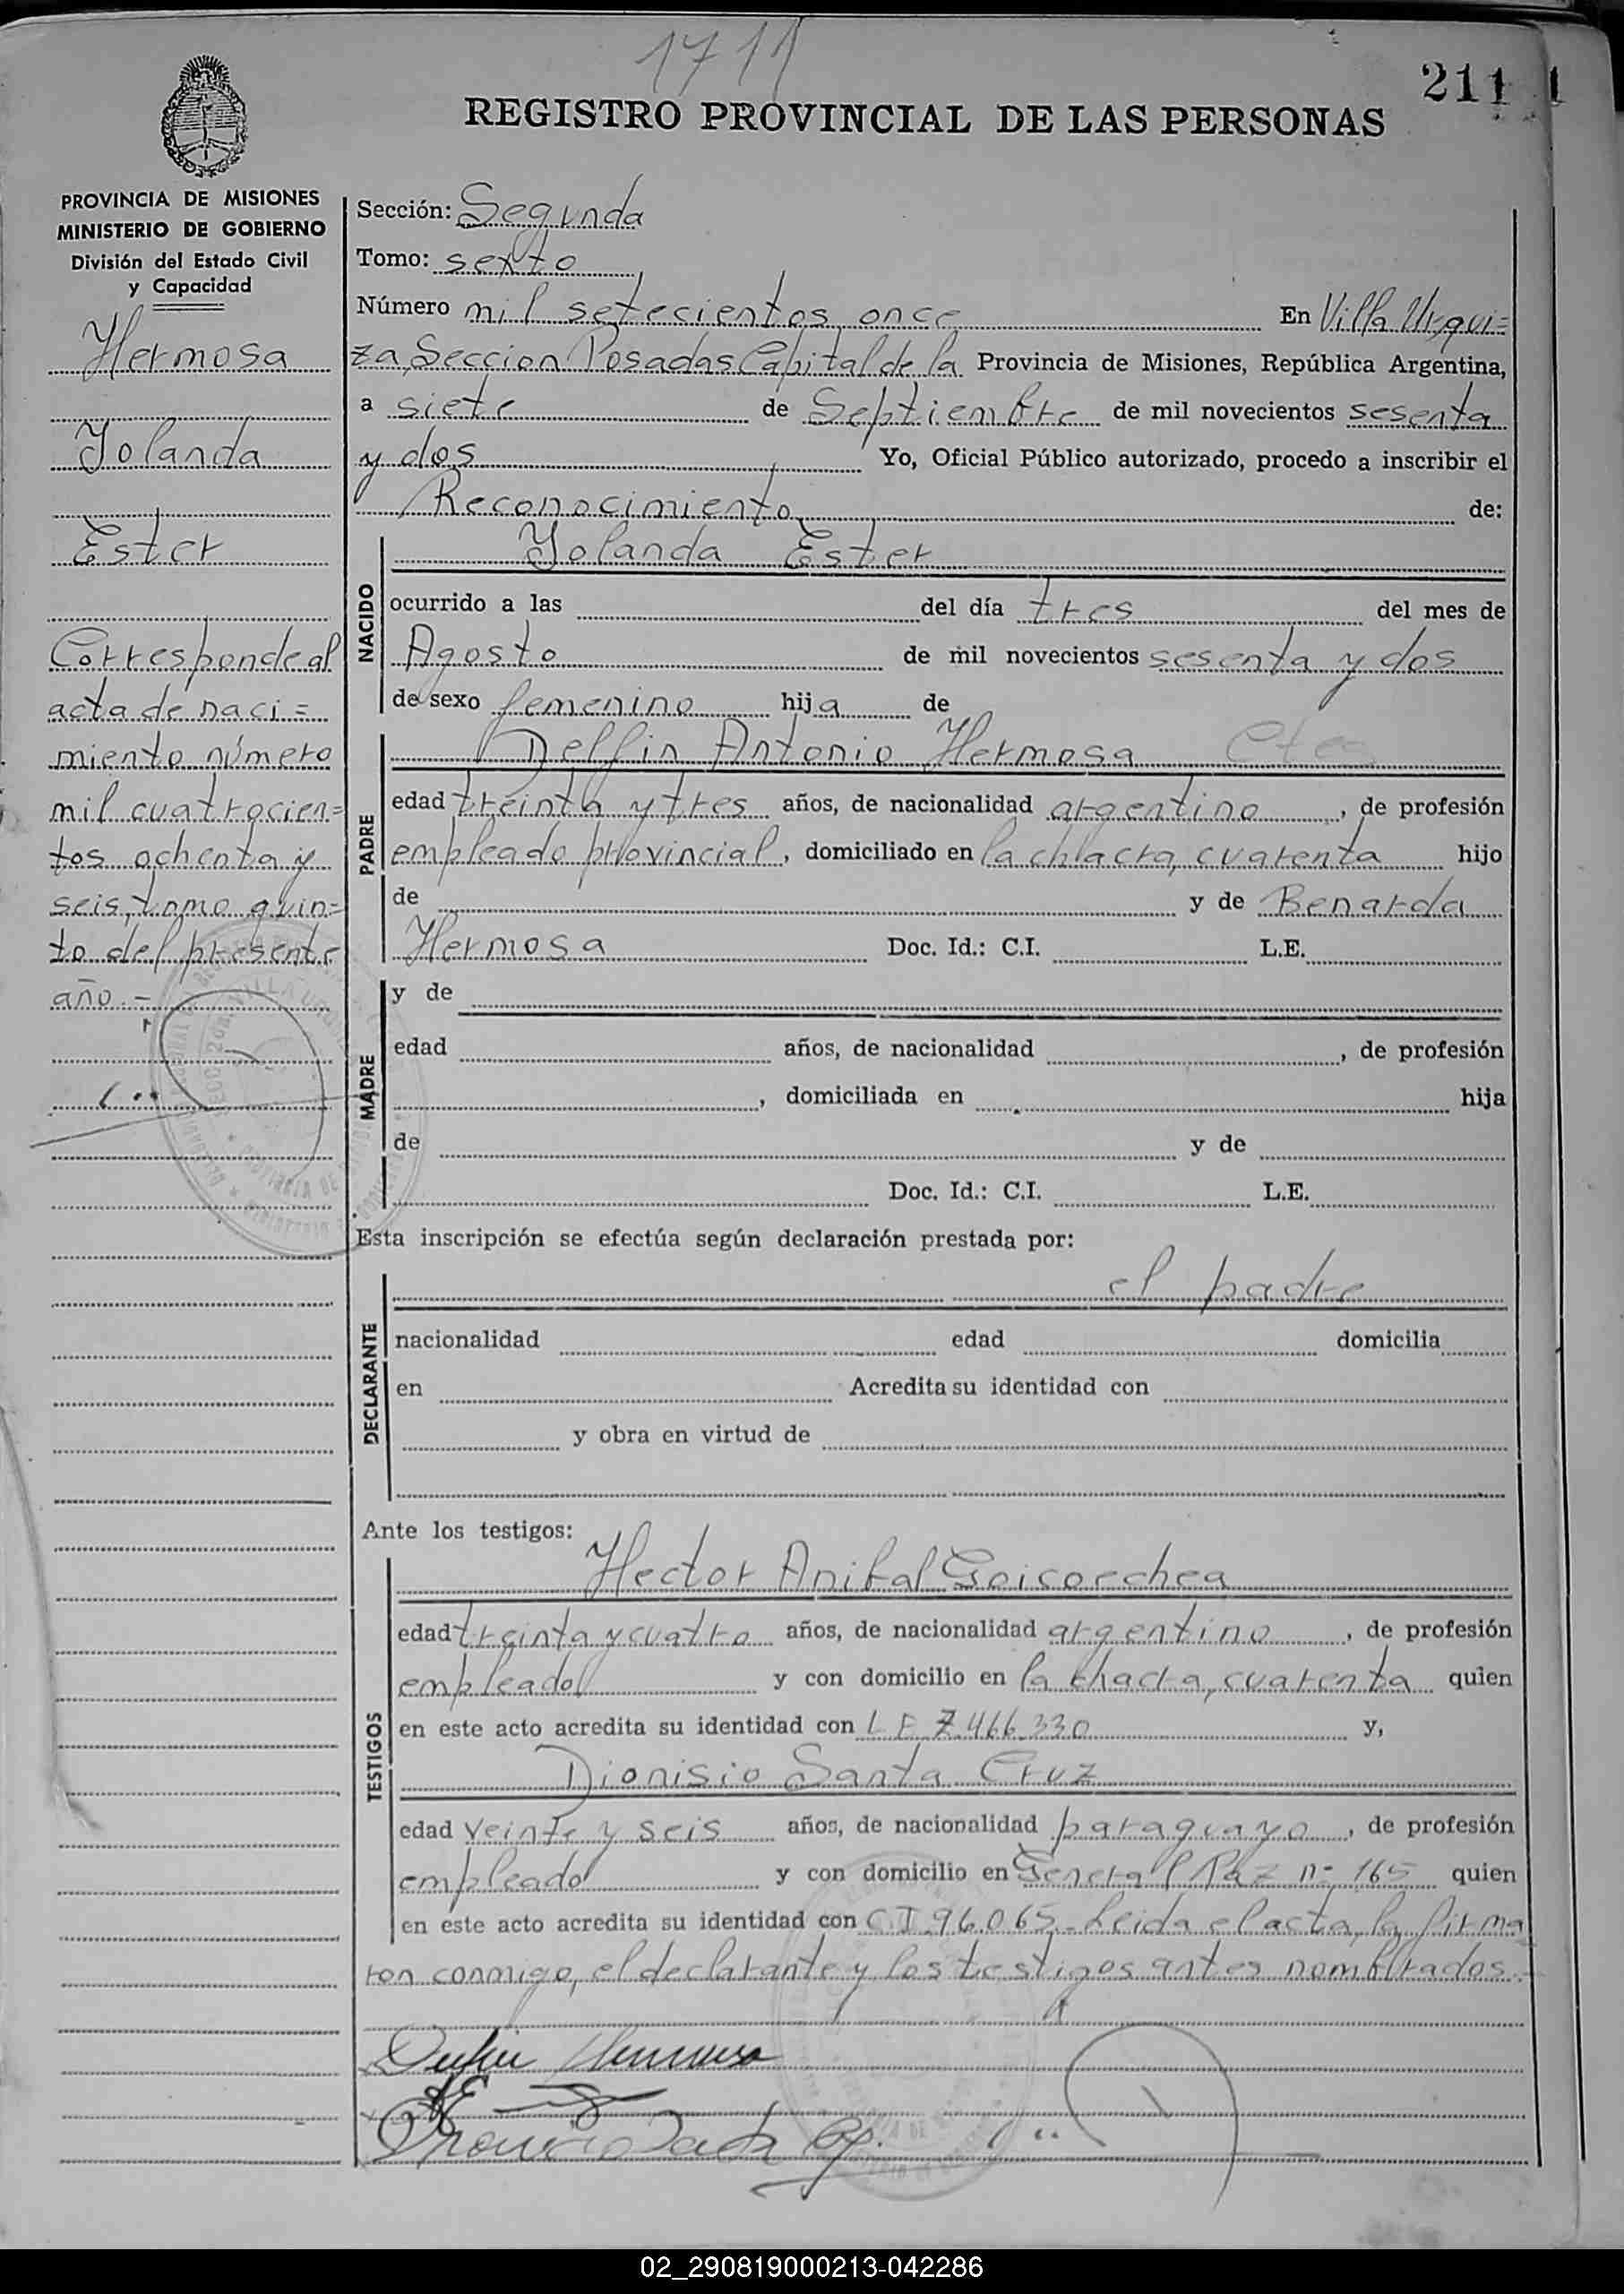 1711
211
REGISTRO PROVINCIAL DE LAS PERSONAS
PROVINCIA DE MISIONES
MINISTERIO DE GOBIERNO
División del Estado Civil
y Capacidad
Hermosa
Yolanda
Ester
Corresponde al
acta de naci=
miento número
mil cuatrocien=
tos ochenta y
seis, tomo quin=
to del presente
año.-
Sección: Segunda
Tomo: sexto
Número mil setecientos once En Villa Urqui=
za, Seccion Posadas Capital de la Provincia de Misiones, República Argentina,
a siete de Septiembre de mil novecientos sesenta
y dos Yo, Oficial Público autorizado, procedo a inscribir el
Reconocimiento de:
NACIDO
Yolanda Ester
ocurrido a las del día tres del mes de
Agosto de mil novecientos sesenta y dos
de sexo femenino hija de
PADRE
Delfin Antonio Hermosa
edad treinta y tres años, de nacionalidad argentino, de profesión
empleado provincial, domiciliado en la chacra, cuarenta hijo
de y de Benarda
Hermosa Doc. Id.: C.I. L.E.
MADRE
y de
edad años, de nacionalidad , de profesión
, domiciliada en hija
de y de
Doc. Id.: C.I. L.E.
Esta inscripción se efectúa según declaración prestada por:
DECLARANTE
el padre
nacionalidad edad domicilia
en Acredita su identidad con
y obra en virtud de
Ante los testigos:
TESTIGOS
Hector Anibal Goicoechea
edad treinta y cuatro años, de nacionalidad argentino, de profesión
empleado y con domicilio en la chacra, cuarenta quien
en este acto acredita su identidad con L E 7.466.330 y,
Dionisio Santa Cruz
edad veinte y seis años, de nacionalidad paraguayo, de profesión
empleado y con domicilio en General Paz nº 165 quien
en este acto acredita su identidad con C.I 96.065.- Leida el acta, la firma
ron conmigo, el declarante y los testigos antes nombrados.-
02_290819000213-042286